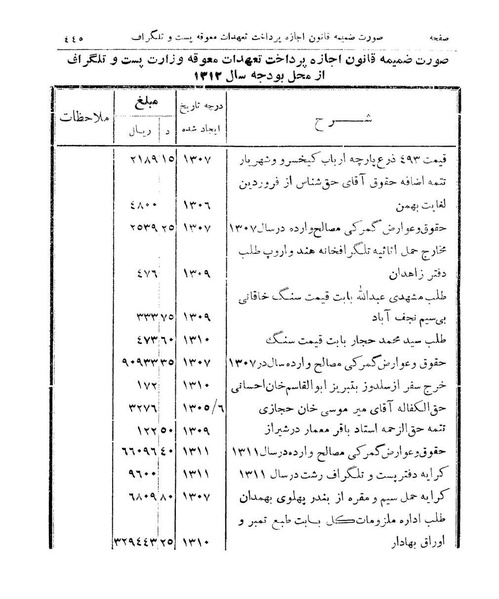 صفحه صورت ضمیمه قانون اجازه پرداخت تعهدات معوقه پست و تلگراف ٤٤٥
صورت ضمیمه قانون اجازه پرداخت تعهدات معوقه وزارت پست و تلگراف
از محل بودجه سال ۱۳۱۲
شرح درجه تاریخ ایجاد شده مبلغ د ریال ملاحظات
قیمت ٤٩٣ ذرع پارچه ارباب کیخسرو و شهریار ۱۳۰۷ ۱۵ ۲۱۸۹
تتمه اضافه حقوق آقای حق‌شناس از فروردین
لغایت بهمن ۱۳۰٦ ٤۸۰۰
حقوق و عوارض گمرکی مصالح وارده در سال ۱۳۰۷ ۱۳۰۷ ۲۵ ۲۵۳۹
مخارج حمل اثاثیه تلگرافخانه هند و اروپ طلب
دفتر زاهدان ۱۳۰۹ ٤۷٦
طلب مشهدی عبدالله بابت قیمت سنگ خاقانی
بی‌سیم نجف آباد ۱۳۰۹ ۷۵ ۳۳۳
طلب سید محمد حجار بابت قیمت سنگ ۱۳۱۰ ٦۰ ٤۷۳
حقوق و عوارض گمرکی مصالح وارده سال در ۱۳۰۷ ۱۳۰۷ ۳۵ ۹۰۹۳۳
خرج سفر از سلدوز بتبریز ابوالقاسم خان احسانی ۱۳۱۰ ۱۷۲
حق‌الکفاله آقای میر موسی خان حجازی ۱۳۰۵/٦ ۳۲۷٦
تتمه حق‌الزحمه استاد باقر معمار در شیراز ۱۳۰۹ ۵۰ ۱۲۲
حقوق و عوارض گمرکی مصالح وارده در سال ۱۳۱۱ ۱۳۱۱ ٤۰ ٦٦۰۹٦
کرایه دفتر پست و تلگراف رشت در سال ۱۳۱۱ ۱۳۱۱ ۹٦۰۰
کرایه حمل سیم و مقره از بندر پهلوی بهمدان ۱۳۰۷ ۸۰ ٦۸۰۹
طلب اداره ملزومات کل بابت طبع تمبر و
اوراق بهادار ۱۳۱۰ ۲۵ ۳۲۹٤٤۳